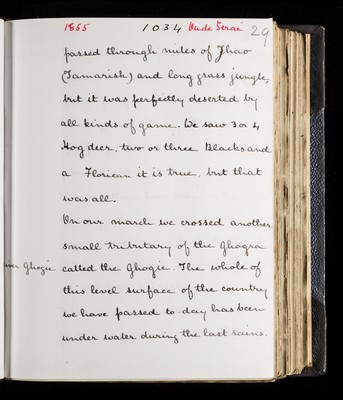 1855 1034 Oude Terai 29
passed through miles of Jhao
(Tamarisk) and long grass jungle,
but it was perfectly deserted by
all kinds of game. We saw 3 or 4
Hog deer, two or three Blacks and
a Florican it is true, but that
was all.
On our march we crossed another
small tributary of the Ghogra
River Ghogie called the Ghogie. The whole of
this level surface of the country
we have passed to-day has been
under water during the last rains.